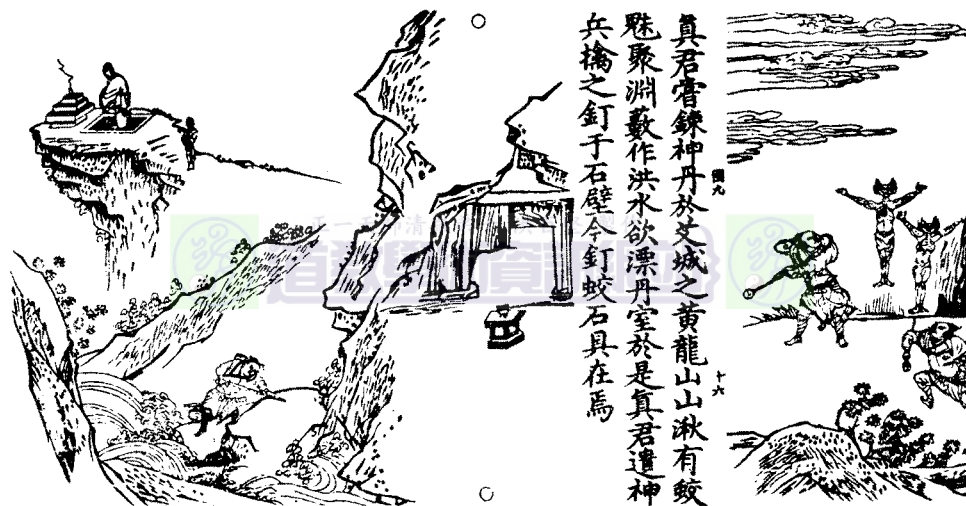 真君嘗鍊神丹於艾城之黃龍山山湫有蛟
魅聚淵藪作洪水欲漂丹室於是真君遣神
兵擒之釘于石壁今釘蛟石具在焉
圖九
十六